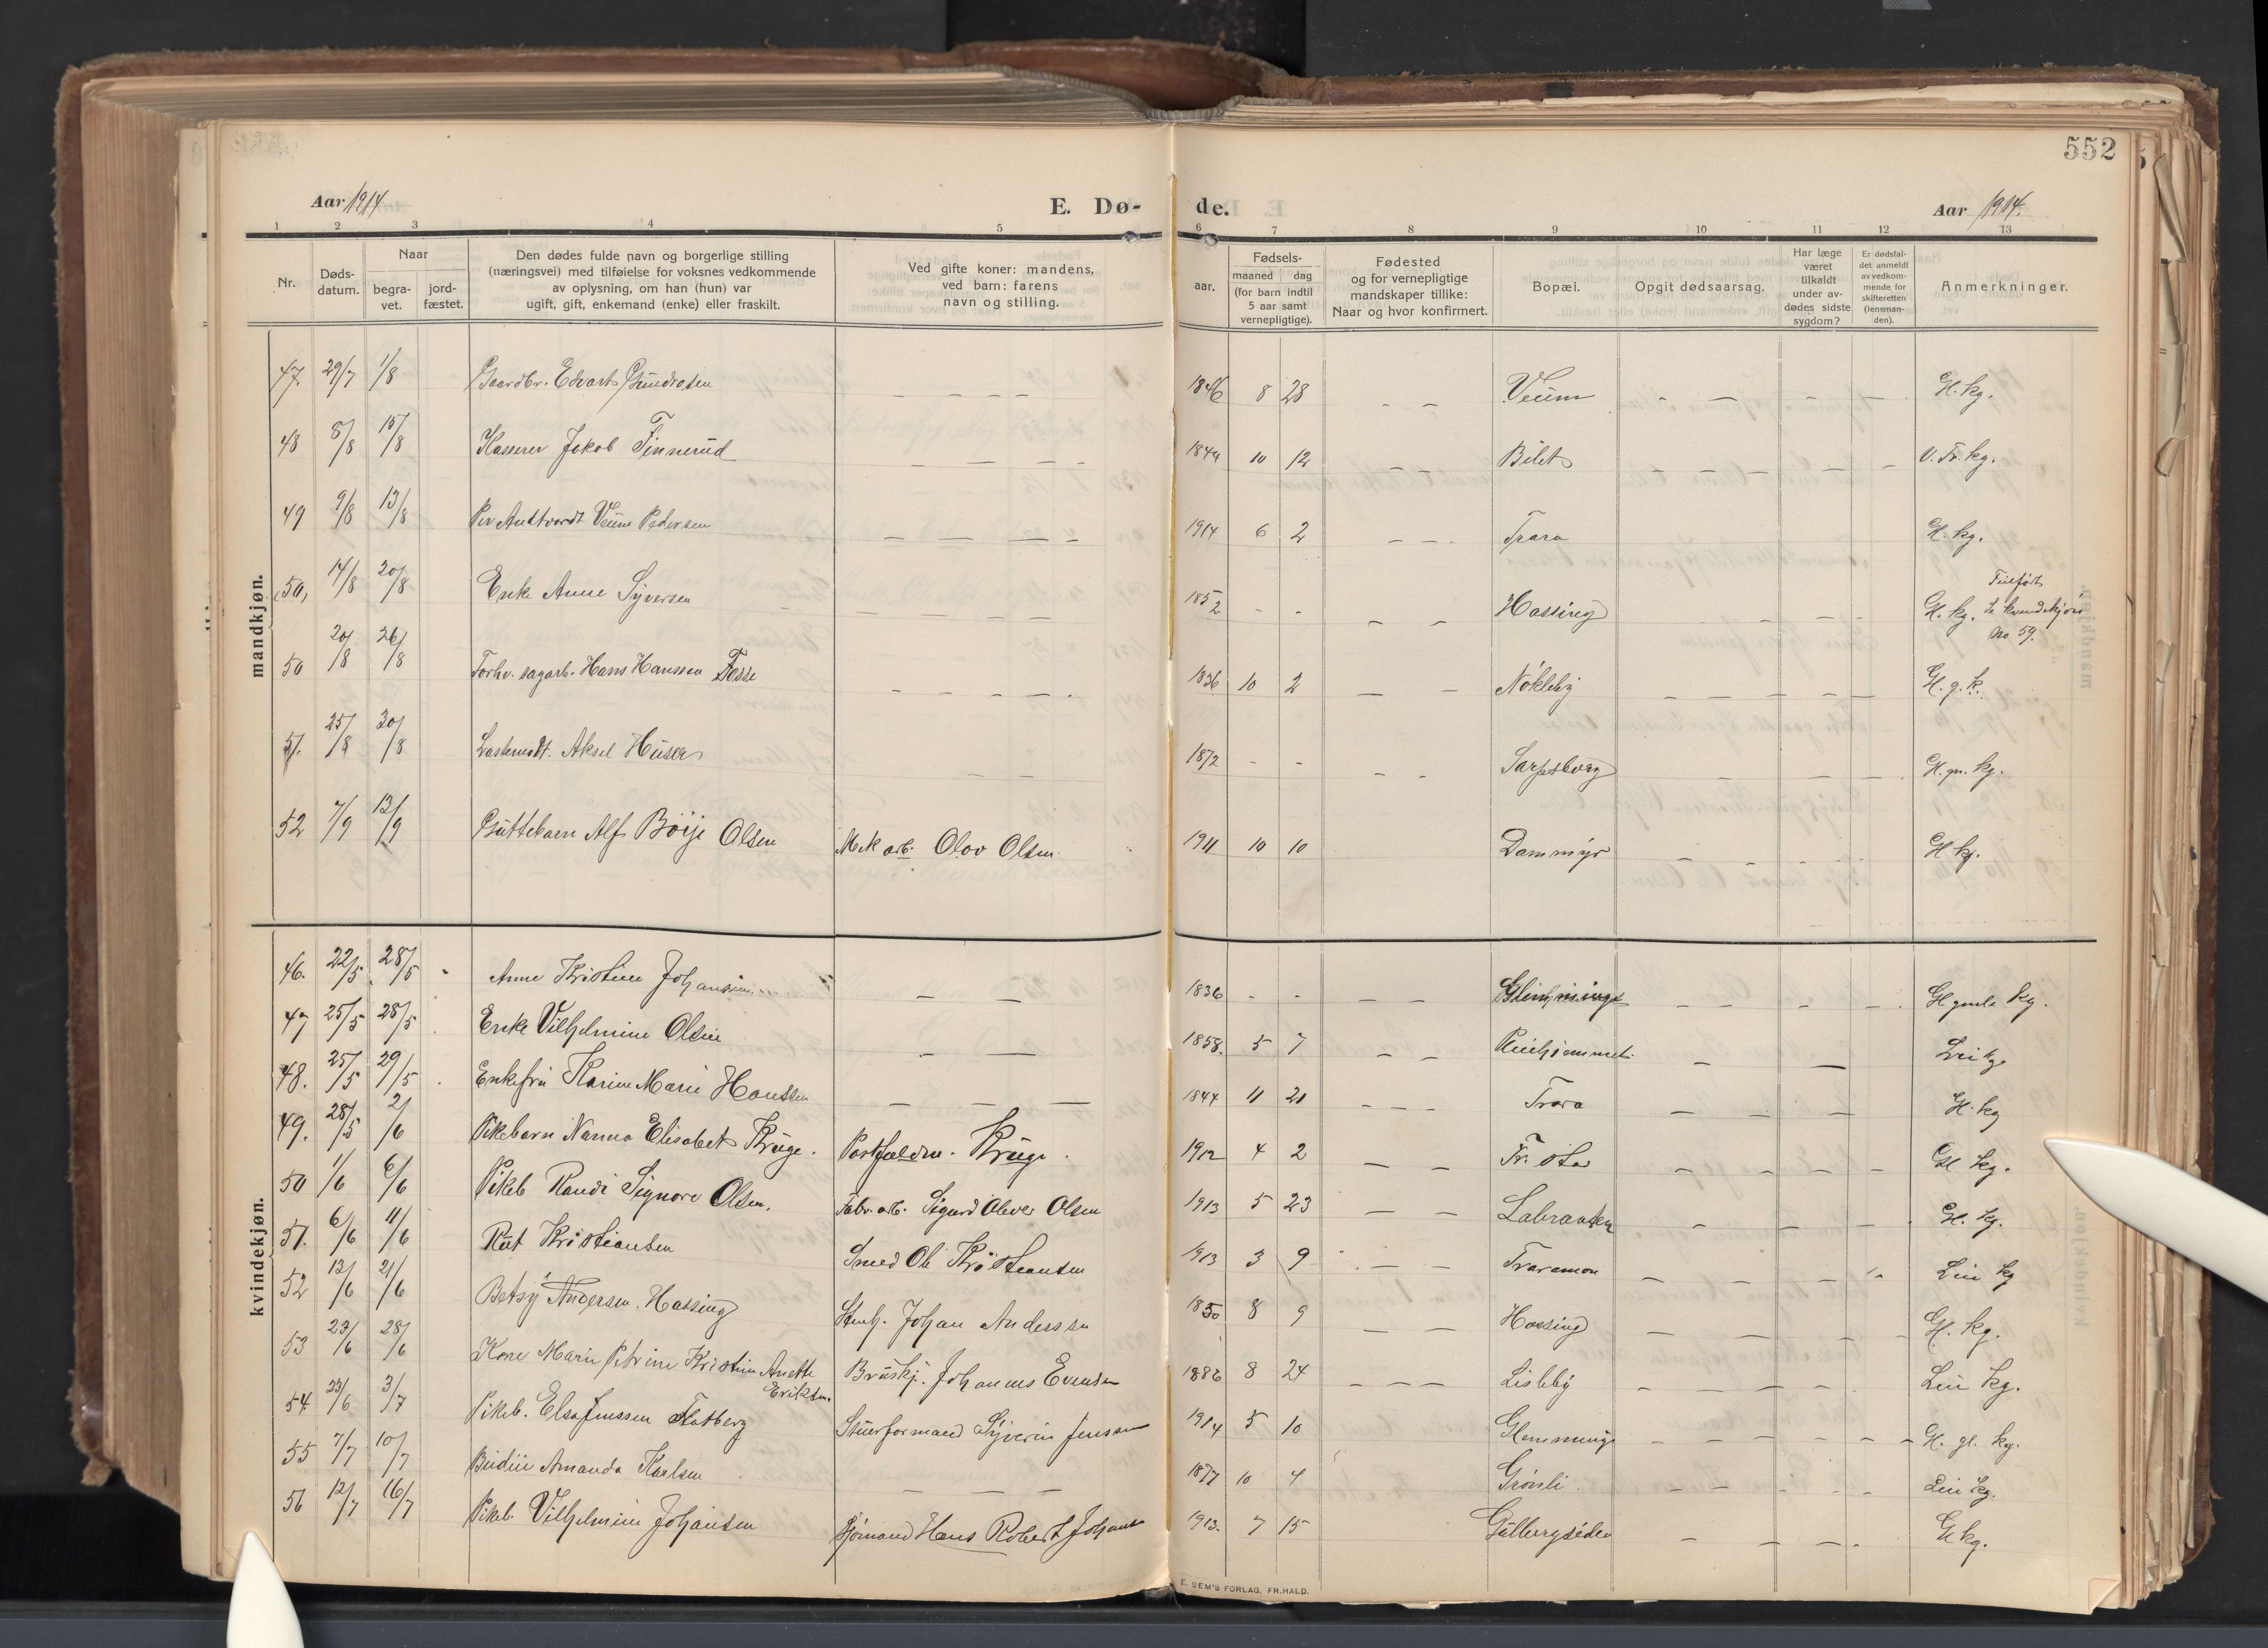 552
Aar 1914 E. Dø- de. Aar 1914.
1 2 3 4 5 6 7 8 9 10 11 12 13
Nr.
Døds-
datum.
Naar
begra-
vet.
jord-
fæstet.
Den dødes fulde navn og borgerlige stilling
(næringsvei) med tilføielse for voksnes vedkommende
av oplysning, om han (hun) var
ugift, gift, enkemand (enke) eller fraskilt.
Ved gifte koner: mandens,
ved barn: farens
navn og stilling.
Fødsels-
aar.
maaned dag
(for barn indtil
5 aar samt
vernepligtige).
Fødested
og for vernepligtige
mandskaper tillike:
Naar og hvor konfirmert.
Bopæl.
Opgit dødsaarsag.
Har læge
været
tilkaldt
under av-
dødes sidste
sygdom?
Er dødsfal-
det anmeldt
av vedkom-
mende for
skifteretten
(lensman-
den).
Anmerkninger.
mandkjøn.
47. 29/7 1/8 Gaardbr. Edvart Gundrosen — — — — 1846 8 28 - - Veum - - - - Gl. kg.
48 8/8 15/8 Kasserer Jokob Finnerud — — — - 1844 10 12 - - Bilet - - - - - V. Fr. kg.
49 9/8 13/8 Per Andtvordt Veum Pedersen — — — - 1914 6 2 - - - Trara Gl. kg.
(50) 14/8 20/8 Enke Anne Syversen — — — — 1852 - - - - Hassing - - - Gl. kg. Feilført
Se kvindekjøn
No 59.
50 20/8 26/8 Forhv. sagarb. Hans Hanssen Fosse - - - - - 1836 10 2 — - Nökleby - - - - - Gl. g. k.
51. 25/8 30/8 Aksel Huser - - 1872 - - - - Sarpsborg - - - - Gl. gn. kg.
52 7/9 13/9 Guttebarn Alf Börje Olsen Mek arb. Olav Olsen 1911 10 10 Dammyr - - - - Gl kg.
kvindekjøn.
46. 22/5 28/5 Anne Kristine Johansen — — 1836 - - — — Glemminge - - - - - Gl gamle kg.
47 25/5 28/5 Enke Vilhjelmine Olsen - — 1858. 5 7 - - Pleiehjemmet - — Lei kg
48. 25/5 29/5 Enkefru Karine Marie Hanssen — — — 1844 11 21 - - - Trara — - — Gl. kg
49. 28/5 2/6 Pikebarn Nanna Elisabet Kruge. Kruge. 1912 4 2 — — Fr. stad - - - - Gl kg.
50 1/6 6/6 Pikeb Randi Signore Olsen. Fabr. arb. Sigurd Oliver Olsen 1913 5 23 — — Labraaten - - - - Gl. kg.
51. 6/6 11/6 Rut Kristiansen Smed Ole Kristiansen 1913 3 9 - - - Traramoen - - - " Lei kg
52 13/6 21/6 Betsy Andersen. Hassing Stenh. Johan Anderssen 1850 8 9 — — Hassing - - - - Gl. kg.
53 23/6 28/6 Kone Marie Petrine Kristine Anette
Eriksen. Johannes Evensen 1886 8 24 - - - Lisleby - - - - Lei kg.
54 23/6 3/7 Pikeb. Elsa Jenssen Flatberg Stuerformand Syverin Jenssen 1914 5 10 Glemminge - - - - - Gl. gl. kg.
55 7/7 10/7 Budeie Amanda Karlsen — — — 1877 10 4 Grönli. - - - - Lei kg.
56 12/7 16/7 Pikeb. Vilhelmine Johansen Sjömand Hans Robert Johans 1913. 7 15 Gulbergsiden - - - . Gl kg.
E. SEM'S FORLAG, FR.HALD.